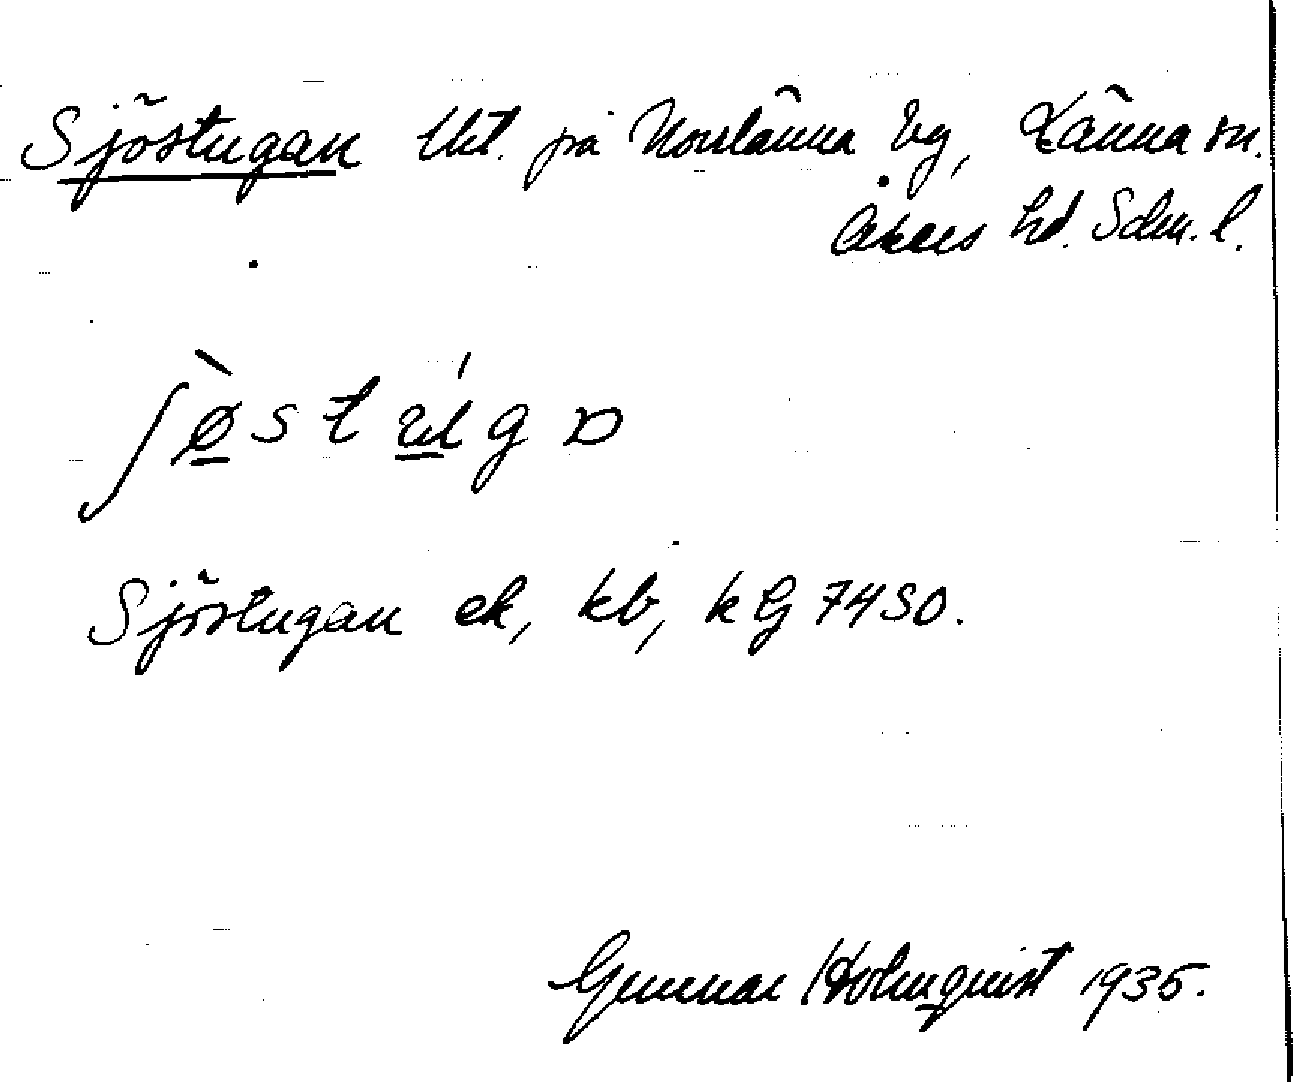 Sjöstugan lht. på Norrlänna äg, Länna sn.
Åkers hd. Sdm. l.
ʃø̀stúga
Sjöstugan ek, kb, k G 7450.
Gunnar Holmquist 1935.